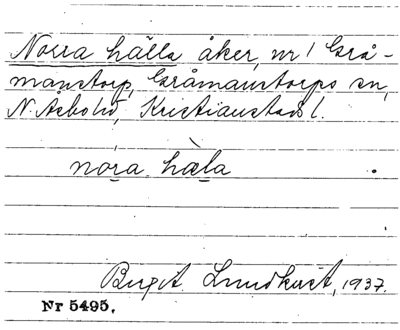 Norra hälla åker, nr 1 Grå-
manstorp, Gråmanstorps sn,
N. Åsbo hd, Kristianstads l.
nóra hæ̀la
Birgit Lundkvist, 1937.
Nr 5495.